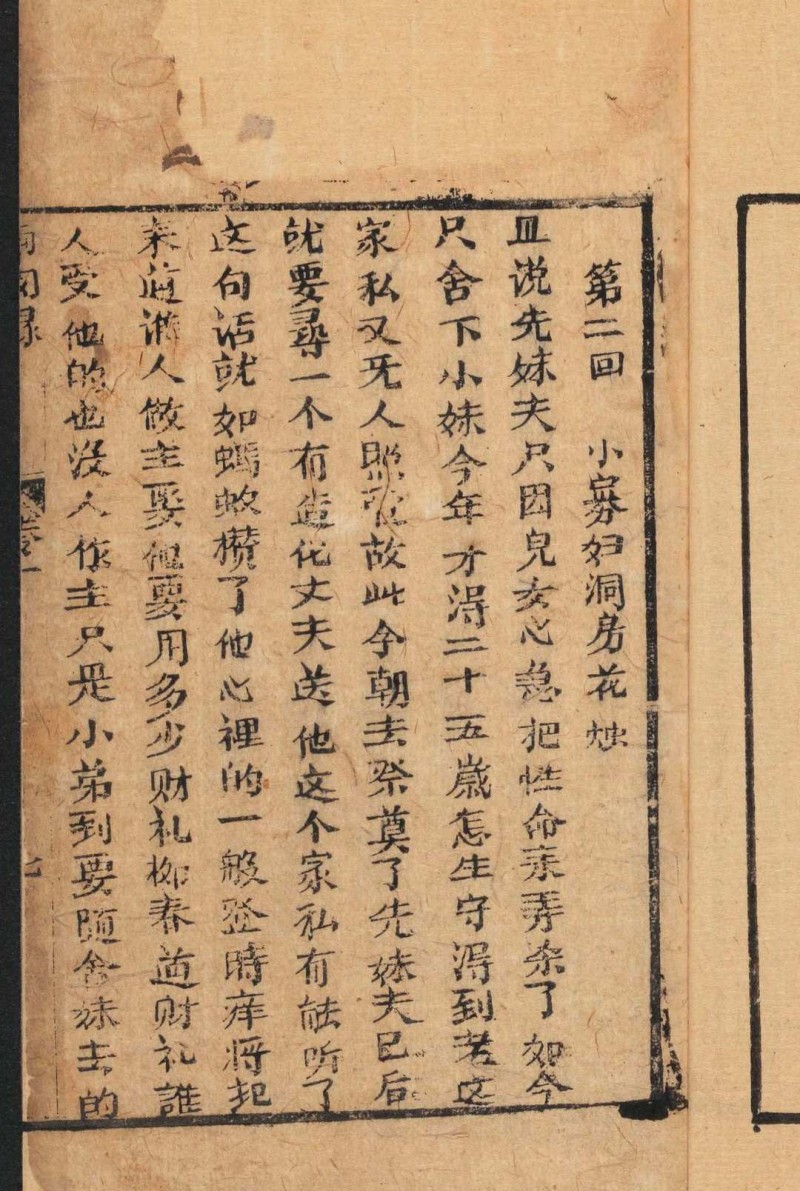 第二回 小寡妇洞房花烛
且说先妹夫只因兒女心急把性命来弄杀了如今
只舍下小妹今年才得二十五歲怎生守得到老这
家私又无人照管故此今朝去祭奠了先妹夫已后
就要尋一个有造化丈夫送他这个家私有能听了
这句话就如螞蚁攒了他心裡的一般登時痒将起
来道谁人做主娶他要用多少财礼柳春道财礼誰
人受他的也没人作主只是小弟到要随舍妹去的
卷一
七